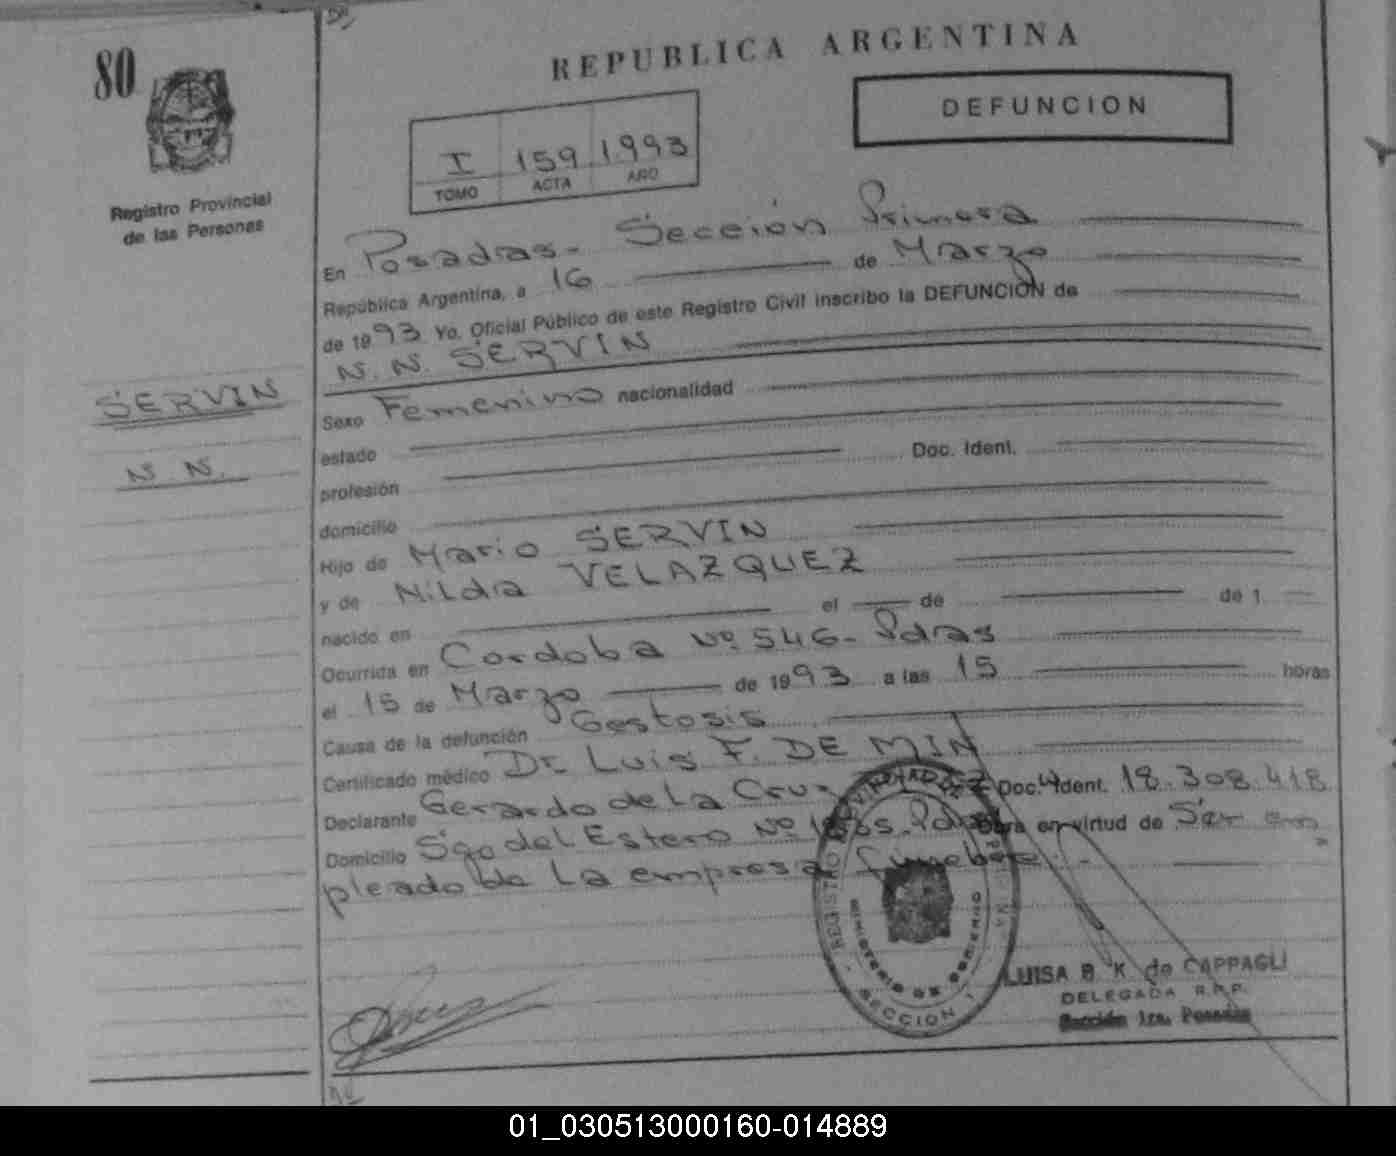 80
Registro Provincial
de las Personas
SERVIN
N. N.
REPUBLICA ARGENTINA
DEFUNCION
I 159 1993
TOMO ACTA AÑO
En Posadas - Sección Primera
República Argentina, a 16 de Marzo
de 1993 Yo, Oficial Público de este Registro Civil inscribo la DEFUNCIÓN de
N. N. SERVIN
Sexo Femenino nacionalidad
estado
profesión Doc. Ident.
domicilio
Hijo de Mario SERVIN
y de Nilda VELAZQUEZ
nacido en el de de 1
Ocurrida en Cordoba Nº 546 - Pdas
el 15 de Marzo de 1993 a las 15 horas
Causa de la defunción Gestosis
Certificado médico Dr. Luis F. DE MIN
Declarante Gerardo de La Cruz Doc. Ident. 18.308.418
Domicilio Sgo del Estero Nº Obra en virtud de Ser em
pleado de La empresa funebre
REGISTRO PROVINCIAL DE
MINISTERIO DE GOBIERNO
SECCION 1
LUISA B. K. de CAPPAGLI
DELEGADA R.P.P.
Sección 1ra. Posadas
01_030513000160-014889